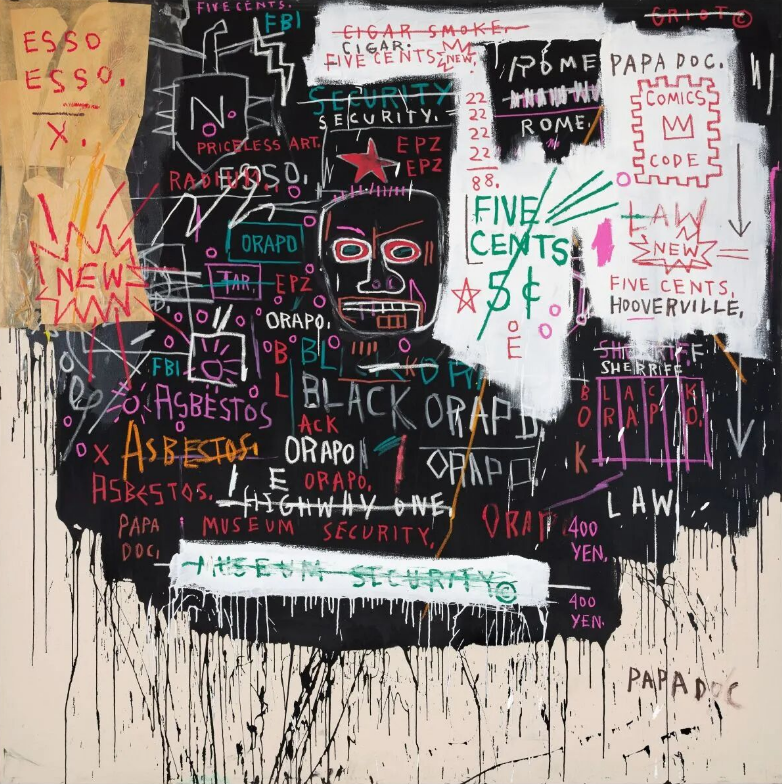 FIVE CENTS.
FBI
CIGAR SMOKE.
CIGAR.
FIVE CENTS
NEW.
GRIOT©
ESSO
ESSO.
X.
NEW
N
PRICELESS ART.
SECURITY
SECURITY.
EPZ
EPZ
22
22
22
22
88.
ROME
ROME.
PAPA DOC.
COMICS
CODE
FIVE
CENTS
5¢
E
LAW
NEW
FIVE CENTS,
HOOVERVILLE,
ORAPO
TAR.
EPZ
ORAPO.
FBI
B
L
BL
ASBESTOS
BLACK ORAPO
ACK
ORAPO
ORAPO
E
ORAPO.
X
ASBESTOS.
ASBESTOS.
HIGHWAY ONE.
PAPA
DOC,
MUSEUM SECURITY,
SHERRIFF
SHERRIFF
BLACK
ORAPO.
K
LAW
400
YEN,
MUSEUM SECURITY©
400
YEN.
PAPA DOC